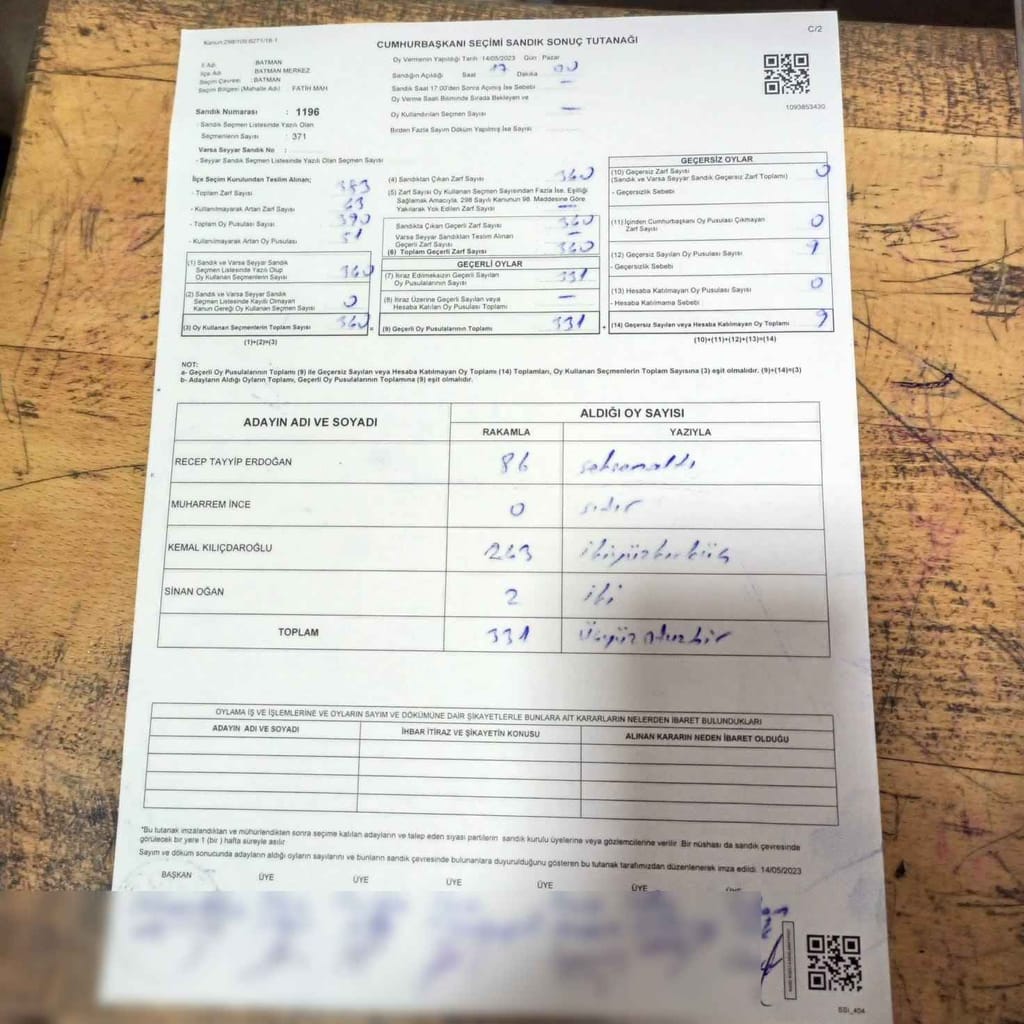 C/2
Kanun:298/109,6271/18-1
CUMHURBAŞKANI SEÇİMİ SANDIK SONUÇ TUTANAĞI
İl Adı : BATMAN
İlçe Adı : BATMAN MERKEZ
Seçim Çevresi : BATMAN
Seçim Bölgesi (Mahalle Adı) FATİH MAH
Oy Vermenin Yapıldığı Tarih 14/05/2023 Gün Pazar
Sandığın Açıldığı Saat 17 Dakika 00
Sandık Saat 17.00'den Sonra Açımış İse Sebebi —
Oy Verme Saati Bitiminde Sırada Bekleyen ve
Oy Kullandırılan Seçmen Sayısı —
Birden Fazla Sayım Döküm Yapılmış İse Sayısı
1093853430
Sandık Numarası : 1196
- Sandık Seçmen Listesinde Yazılı Olan
Seçmenlerin Sayısı : 371
Varsa Seyyar Sandık No :
- Seyyar Sandık Listesinde Yazılı Olan Seçmen Sayısı
İlçe Seçim Kurulundan Teslim Alınan;
- Toplam Zarf Sayısı
- Kullanılmayarak Artan Zarf Sayısı
- Toplam Oy Pusulası Sayısı 390
- Kullanılmayarak Artan Oy Pusulası
(1) Sandık ve Varsa Seyyar Sandık
Seçmen Listesinde Yazılı Olup
Oy Kullanan Seçmenlerin Sayısı 340
(2) Sandık ve Varsa Seyyar Sandık
Seçmen Listesinde Kayıtlı Olmayan
Kanun Gereği Oy Kullanan Seçmen Sayısı 0
(3) Oy Kullanan Seçmenlerin Toplam Sayısı 340 =
(1)+(2)=(3)
(4) Sandıktan Çıkan Zarf Sayısı 340
(5) Zarf Sayısı Oy Kullanan Seçmen Sayısından Fazla İse, Eşitliği
Sağlamak Amacıyla, 298 Sayılı Kanunun 98. Maddesine Göre
Yakılarak Yok Edilen Zarf Sayısı —
Sandıkta Çıkan Geçerli Zarf Sayısı 340
Varsa Seyyar Sandıktan Teslim Alınan
Geçerli Zarf Sayısı —
(6) Toplam Geçerli Zarf Sayısı 340
GEÇERLİ OYLAR
(7) İtiraz Edilmeksizin Geçerli Sayılan
Oy Pusulalarının Sayısı 331
(8) İtiraz Üzerine Geçerli Sayılan veya
Hesaba Katılan Oy Pusulası Toplamı —
(9) Geçerli Oy Pusulalarının Toplamı 331 +
GEÇERSİZ OYLAR
(10) Geçersiz Zarf Sayısı
(Sandık ve Varsa Seyyar Sandık Geçersiz Zarf Toplamı) 0
- Geçersizlik Sebebi
(11) İçinden Cumhurbaşkanı Oy Pusulası Çıkmayan
Zarf Sayısı 0
(12) Geçersiz Sayılan Oy Pusulası Sayısı 9
- Geçersizlik Sebebi
(13) Hesaba Katılmayan Oy Pusulası Sayısı 0
- Hesaba Katılmama Sebebi
(14) Geçersiz Sayılan veya Hesaba Katılmayan Oy Toplamı 9
(10)+(11)+(12)+(13)=(14)
NOT:
a- Geçerli Oy Pusulalarının Toplamı (9) ile Geçersiz Sayılan veya Hesaba Katılmayan Oy Toplamı (14) Toplamları, Oy Kullanan Seçmenlerin Toplam Sayısına (3) eşit olmalıdır. (9)+(14)=(3)
b- Adayların Aldığı Oyların Toplamı, Geçerli Oy Pusulalarının Toplamına (9) eşit olmalıdır.
ADAYIN ADI VE SOYADI ALDIĞI OY SAYISI
RAKAMLA YAZIYLA
RECEP TAYYİP ERDOĞAN 86 seksenaltı
MUHARREM İNCE 0 sıfır
KEMAL KILIÇDAROĞLU 243 ikiyüzkırküç
SİNAN OĞAN 2 iki
TOPLAM 331 Üçyüzotuzbir
OYLAMA İŞ VE İŞLEMLERİNE VE OYLARIN SAYIM VE DÖKÜMÜNE DAİR ŞİKAYETLERLE BUNLARA AİT KARARLARIN NELERDEN İBARET BULUNDUKLARI
ADAYIN ADI VE SOYADI İHBAR İTİRAZ VE ŞİKAYETİN KONUSU ALINAN KARARIN NEDEN İBARET OLDUĞU
*Bu tutanak imzalandıktan ve mühürlendikten sonra seçime katılan adayların ve talep eden siyasi partilerin sandık kurulu üyelerine veya gözlemcilerine verilir. Bir nüshası da sandık çevresinde
görülecek bir yere 1 (bir ) hafta süreyle asılır
Sayım ve döküm sonucunda adayların aldığı oyların sayılarını ve bunların sandık çevresinde bulunanlara duyurulduğunu gösteren bu tutanak tarafımızdan düzenlenerek imza edildi. 14/05/2023
BAŞKAN ÜYE ÜYE ÜYE ÜYE ÜYE ÜYE